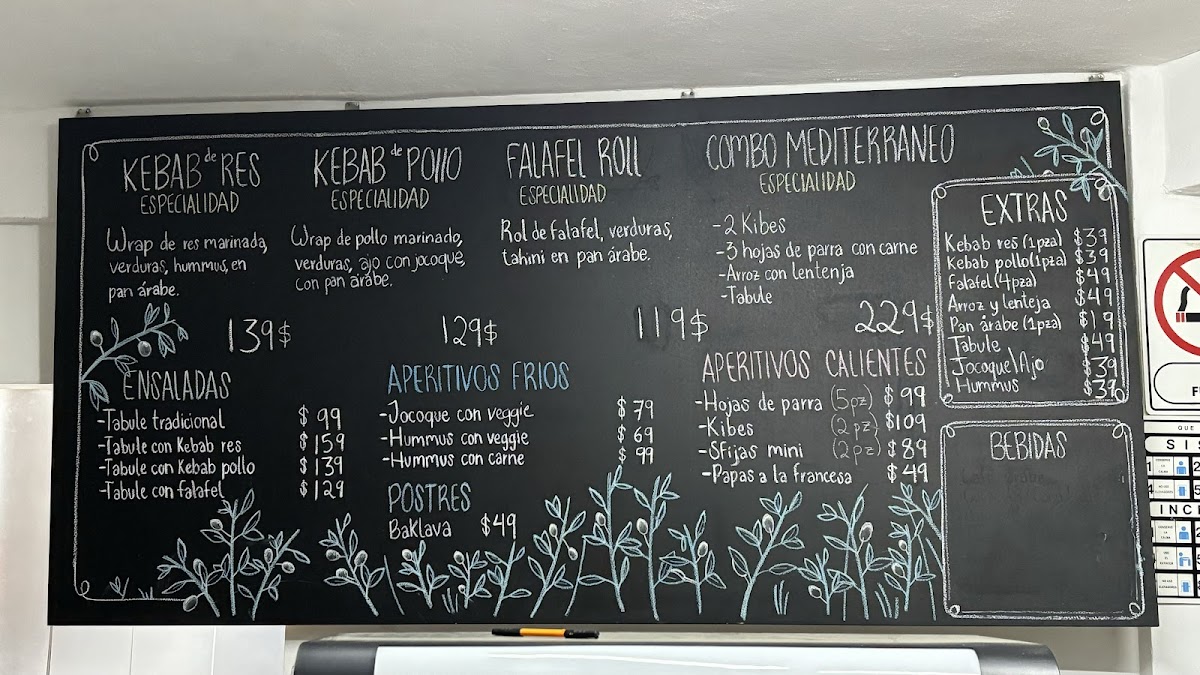 KEBAB de RES
ESPECIALIDAD
Wrap de res marinada,
verduras, hummus, en
pan árabe.
139$
KEBAB de POllO
ESPECIALIDAD
Wrap de pollo marinado,
verduras, ajo con jocoque,
con pan árabe.
129$
FALAFEL ROLL
ESPECIALIDAD
Rol de falafel, verduras,
tahini en pan árabe.
119$
COMBO MEDITERRANEO
ESPECIALIDAD
-2 Kibes
-3 hojas de parra con carne
-Arroz con lentenja
-Tabule
229$
ENSALADAS
-Tabule tradicional $99
-Tabule con Kebab res $159
-Tabule con Kebab pollo $139
-Tabule con falafel $129
APERITIVOS FRIOS
-Jocoque con veggie $79
-Hummus con veggie $69
-Hummus con carne $99
POSTRES
Baklava $49
APERITIVOS CALIENTES
-Hojas de parra (5pz) $99
-Kibes (2pz) $109
-Sfijas mini (2pz) $89
-Papas a la francesa $49
EXTRAS
Kebab res (1pza) $39
Kebab pollo (1pza) $39
Falafel (4pza) $49
Arroz y lenteja $49
Pan árabe (1pza) $19
Tabule $49
Jocoque\Ajo $39
Hummus $39
BEBIDAS
QUE
SIS
INC